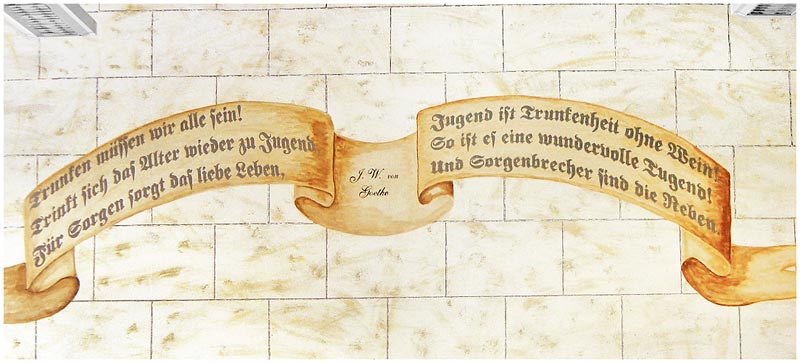 Trunken müssen wir alle sein!
Trinkt sich das Alter wieder zu Jugend
Für Sorgen sorgt das liebe Leben,
J. W. von
Goethe
Jugend ist Trunkenheit ohne Wein!
So ist es eine wundervolle Tugend!
Und Sorgenbrecher sind die Reben.